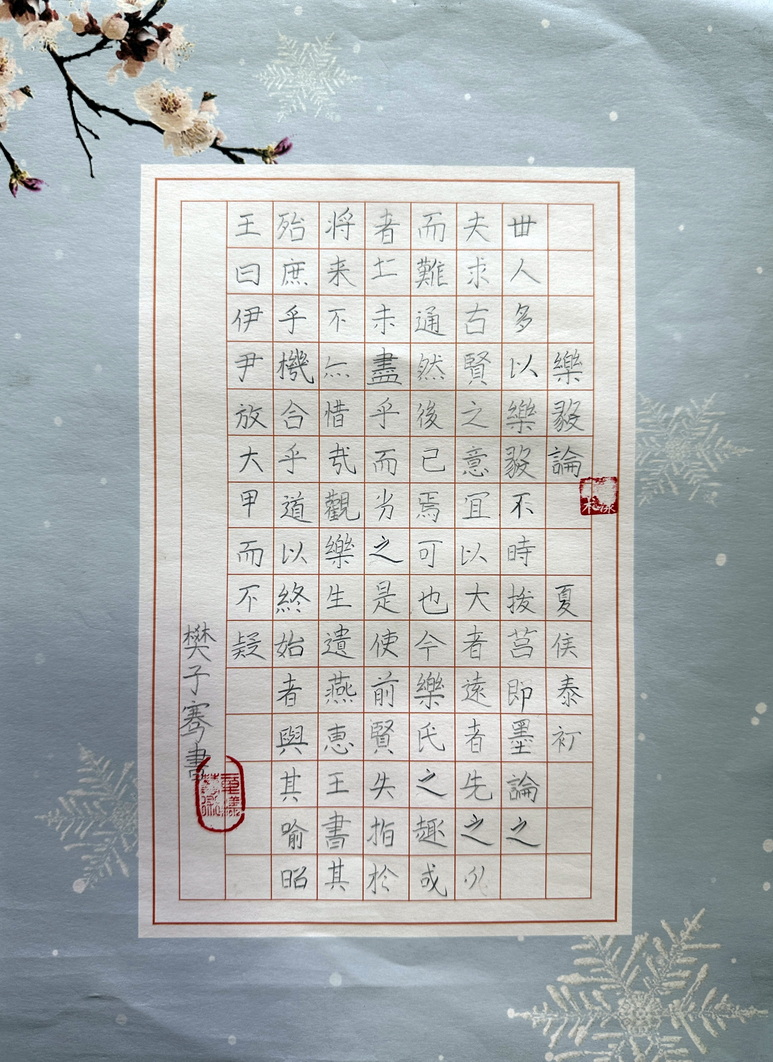 樂毅論 夏侯泰初
世人多以樂毅不時拔莒即墨論之
夫求古賢之意宜以大者遠者先之必
而難通然後已焉可也今樂氏之趣或
者士未盡乎而劣之是使前賢失指於
将来不亦惜哉觀樂生遺燕惠王書其
殆庶乎機合乎道以終始者與其喻昭
王曰伊尹放大甲而不疑
樊子骞書